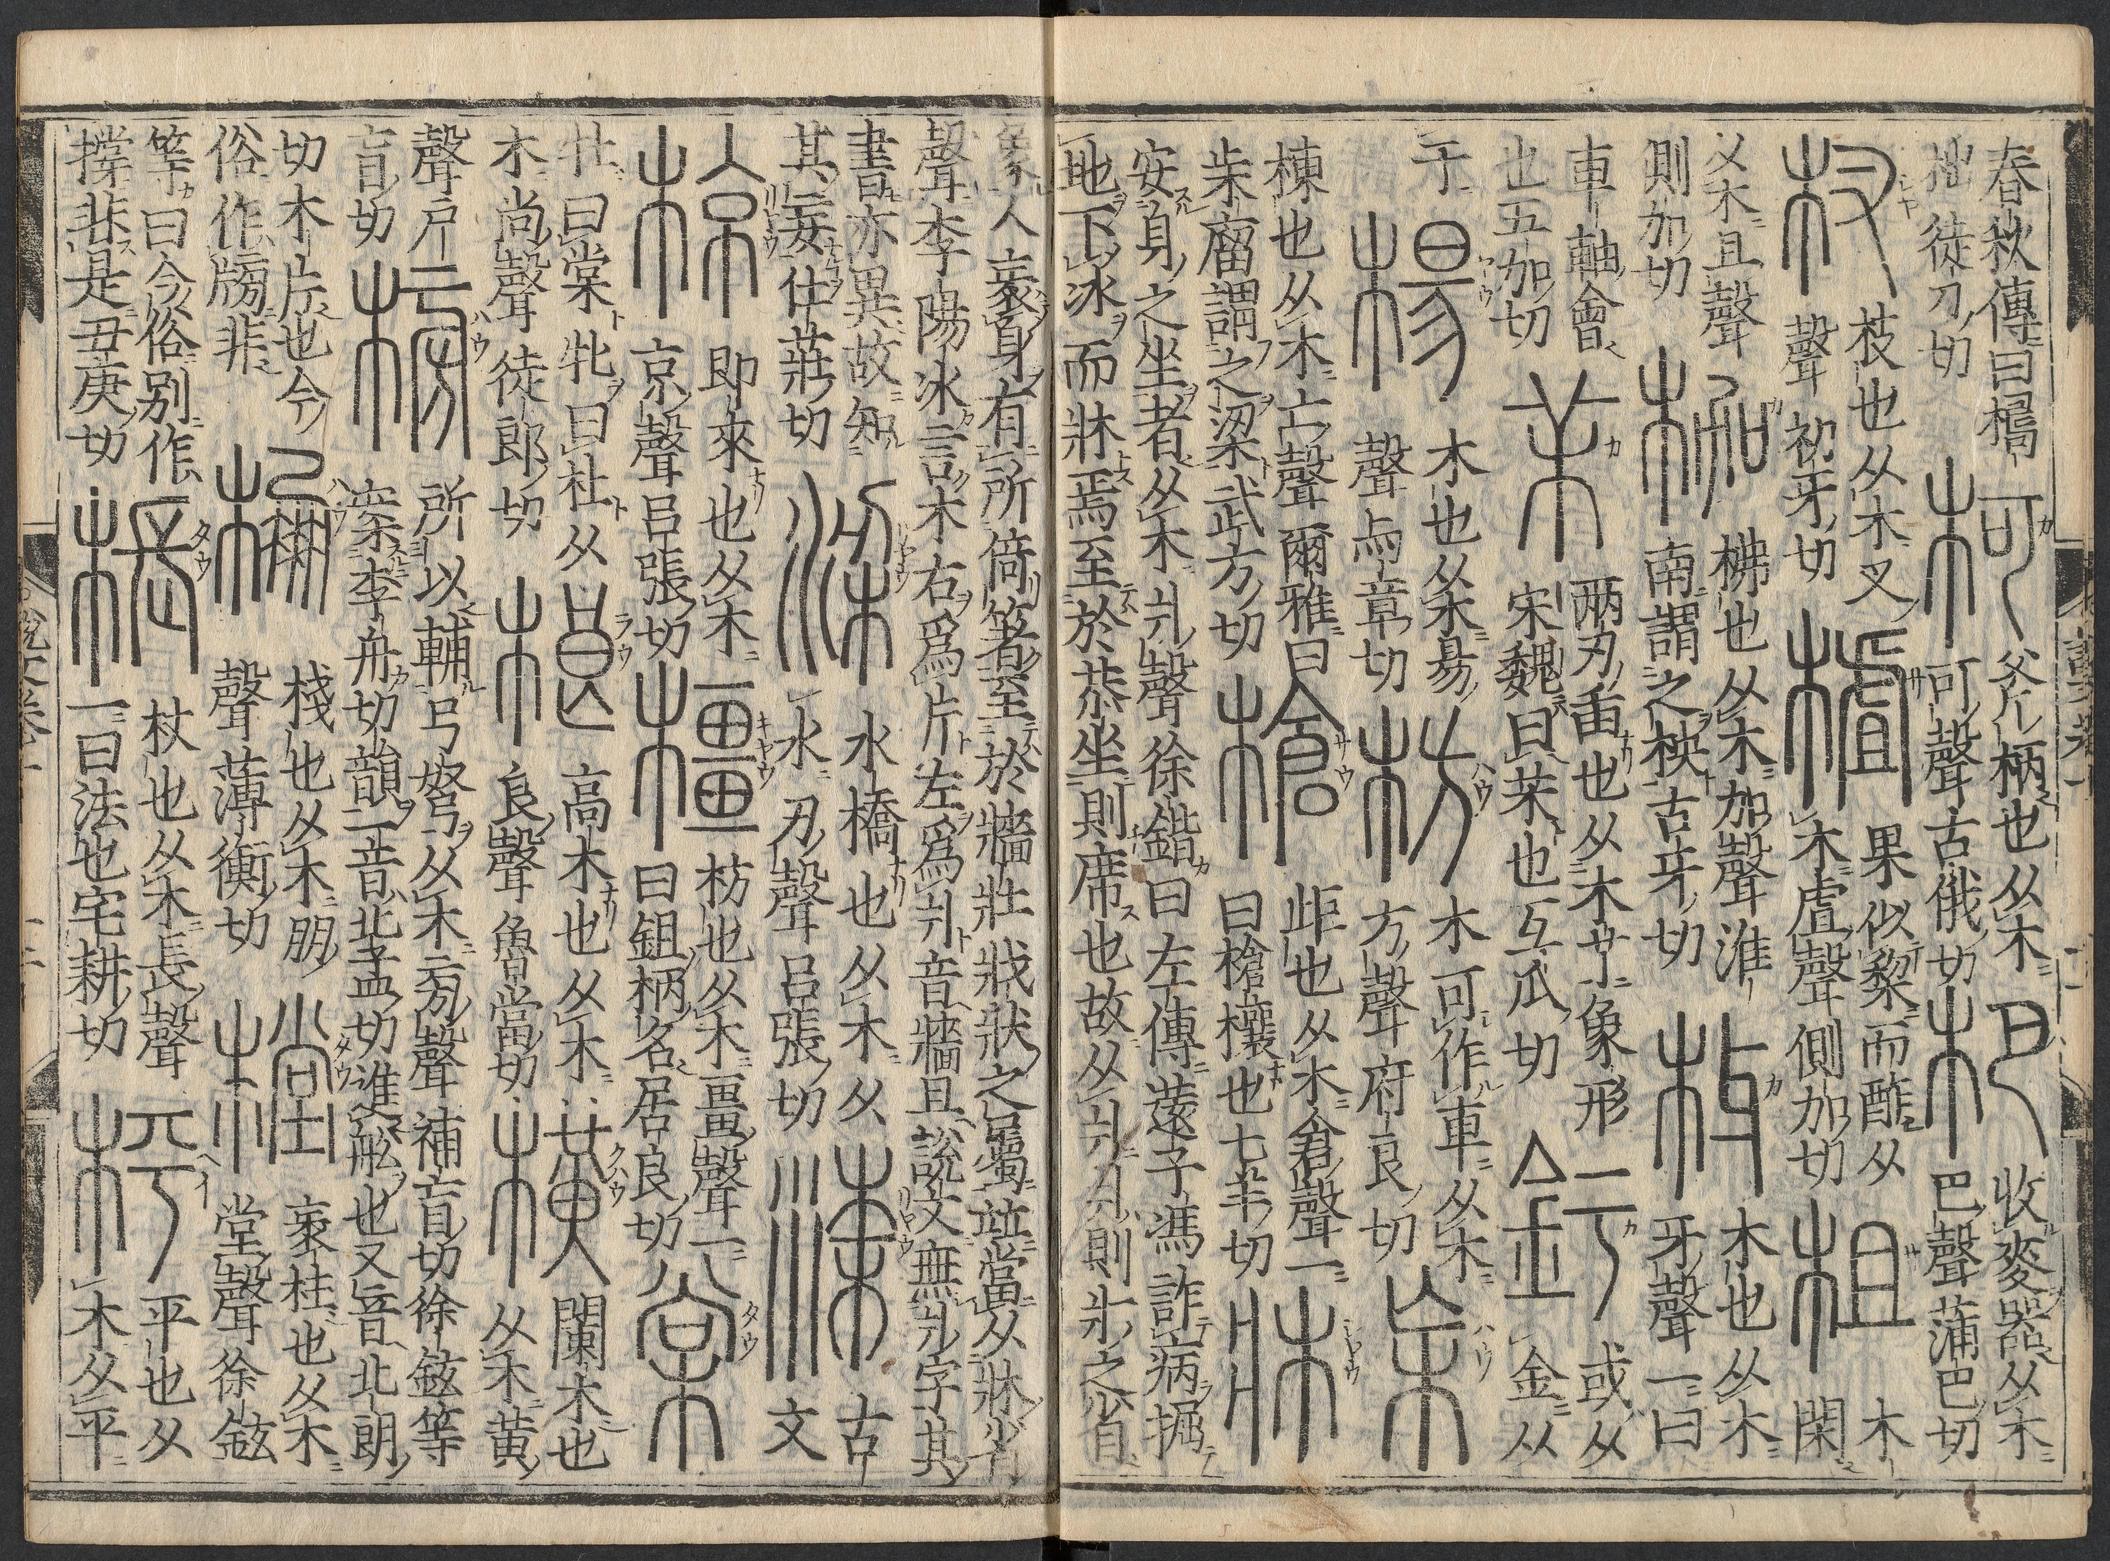 春秋傳曰檮
柮徒刀切
柯
斧柄也从木
可聲古俄切
杷
收麥器从木
巴聲蒲巴切
杈
枝也从木叉
聲初牙切
樝
果似棃而酢从
木虘聲側加切
柤
木
閑
从木且聲
則加切
枷
柫也从木加聲淮
南謂之柍古牙切
枒
木也从木
牙聲一曰
車軸會
也五加切
茉
兩刃臿也从木象形
宋魏曰茉也互瓜切
釫
或从
金从
于
楊
木也从木昜
聲与章切
枋
木可作車从木
方聲府良切
杗
棟也从木亡聲爾雅曰
杗廇謂之梁武方切
槍
歫也从木倉聲一
曰槍欀也七羊切
牀
安身之坐者从木爿聲徐鍇曰左傳薳子馮詐病掘
地下冰而牀焉至於恭坐則席也故从爿爿則爿之省
象人衺身有所倚著至於牆壯戕狀之屬並當从牀省
聲李陽冰言木右爲片左爲爿音牆且說文無爿字其
書亦異故知
其妄仕莊切
梁
水橋也从木从
水刅聲呂張切
古
文
椋
即來也从木
京聲呂張切
橿
枋也从木畺聲一
曰鉏柄名居良切
棠
牡曰棠牝曰杜从
木尚聲徒郎切
桹
高木也从木
良聲魯當切
横
闌木也
从木黃
聲戶
盲切
榜
所以輔弓弩从木㫄聲補盲切徐鉉等
案李舟切韻一音北孟切進船也又音北朗
切木片也今
俗作牓非
棚
棧也从木朋
聲薄衡切
樘
衺柱也从木
堂聲徐鉉
等曰今俗别作
撑非是丑庚切
棖
杖也从木長聲
一曰法也宅耕切
枰
平也从
木从平